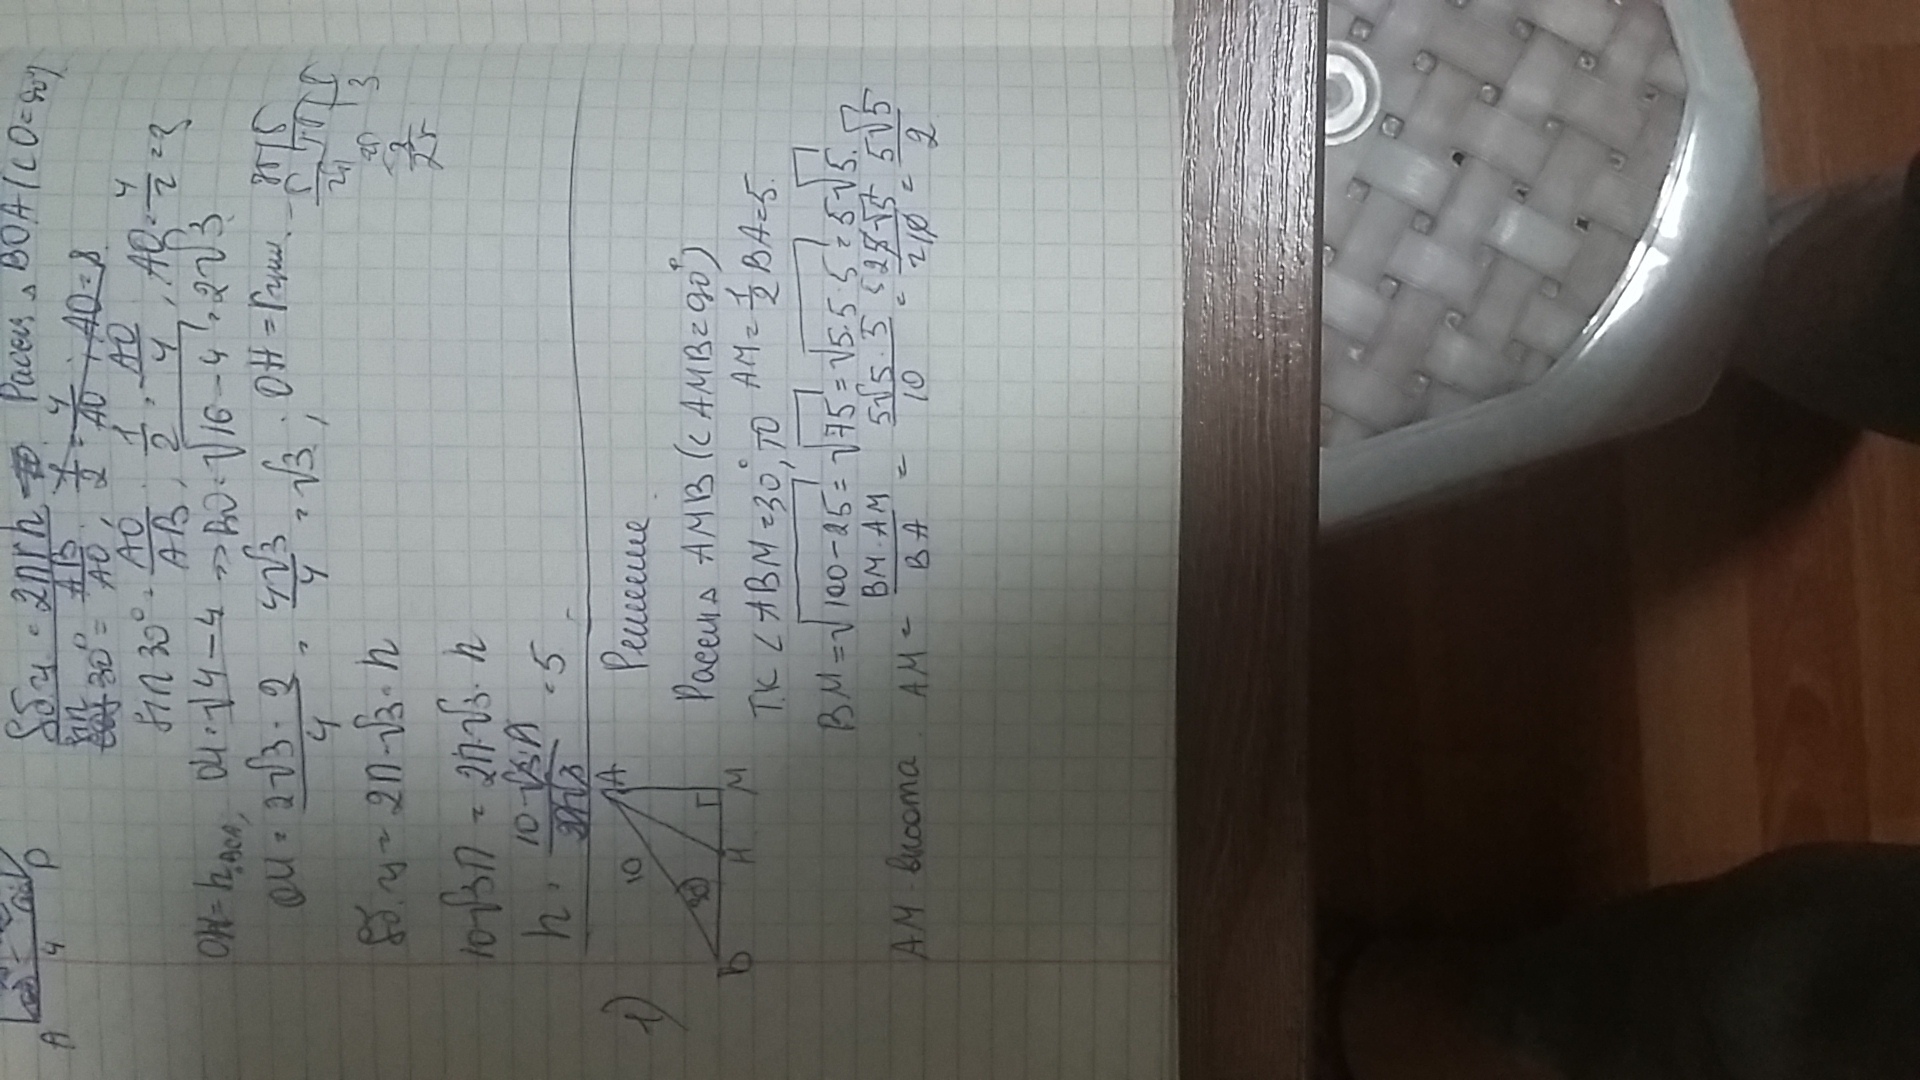 Sб.ц = 2πrh. Рассм △ BOA (∠O=90°)
sin 30° = AB/AO, 1/2 = 4/AO, AO=8
sin 30° = AO/AB, 1/2 = AO/4, AO = 4/2 = 2
OH = h, OH = √4-4 => BO = √16-4 = 2√3
OH = 2√3·2/4 = 4√3/4 = √3, OH = rцил.
Sб.ц = 2π·√3·h
10√3π = 2π·√3·h
h = 10·√3·π/2π√3 = 5
A
4
D
1)
Решение
A
10
30
B
H
M
Рассм △ AMB (∠AMB=90°)
Т.К ∠ABM=30°, то AM=1/2 BA=5.
BM=√100-25=√75=√5·5·5=5√5.
AM-высота. AM = BM·AM/BA = 5√5·5/10 = 25√5/10 = 5√5/2